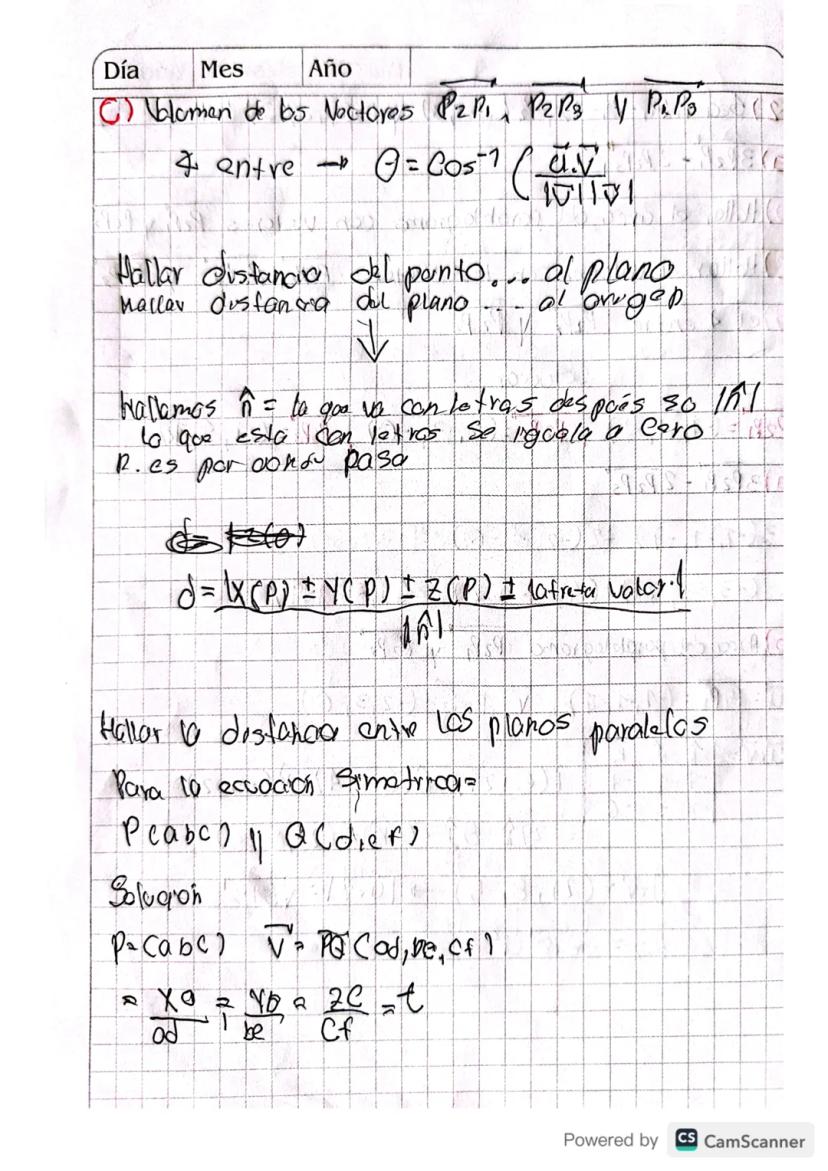 Día Mes Año
C) Volumen de los Vectores P₂P₁, P₂P₃ y P₁P₃
∡ entre → θ = Cos⁻¹ ( ū.v̄ / |v̄||v̄|
Hallar distancia del punto... al plano
Hallar distancia del plano ... al origen
↓
hallamos n̂ = lo que va con letras después so |n̂|
lo que esta con letras se iguala a cero
P. es por donde pasa
d = |X(P) ± Y(P) ± Z(P) ± valor| / |n̂|
Hallar la distancia entre los planos paralelos
Para la ecuacion Simetrica =
P(abc) || Q(d,ef)
Solucion
P=(abc) V⃗ = PQ (ad, be, cf)
= xa/ad = yb/be = zc/cf = t
Powered by CS CamScanner